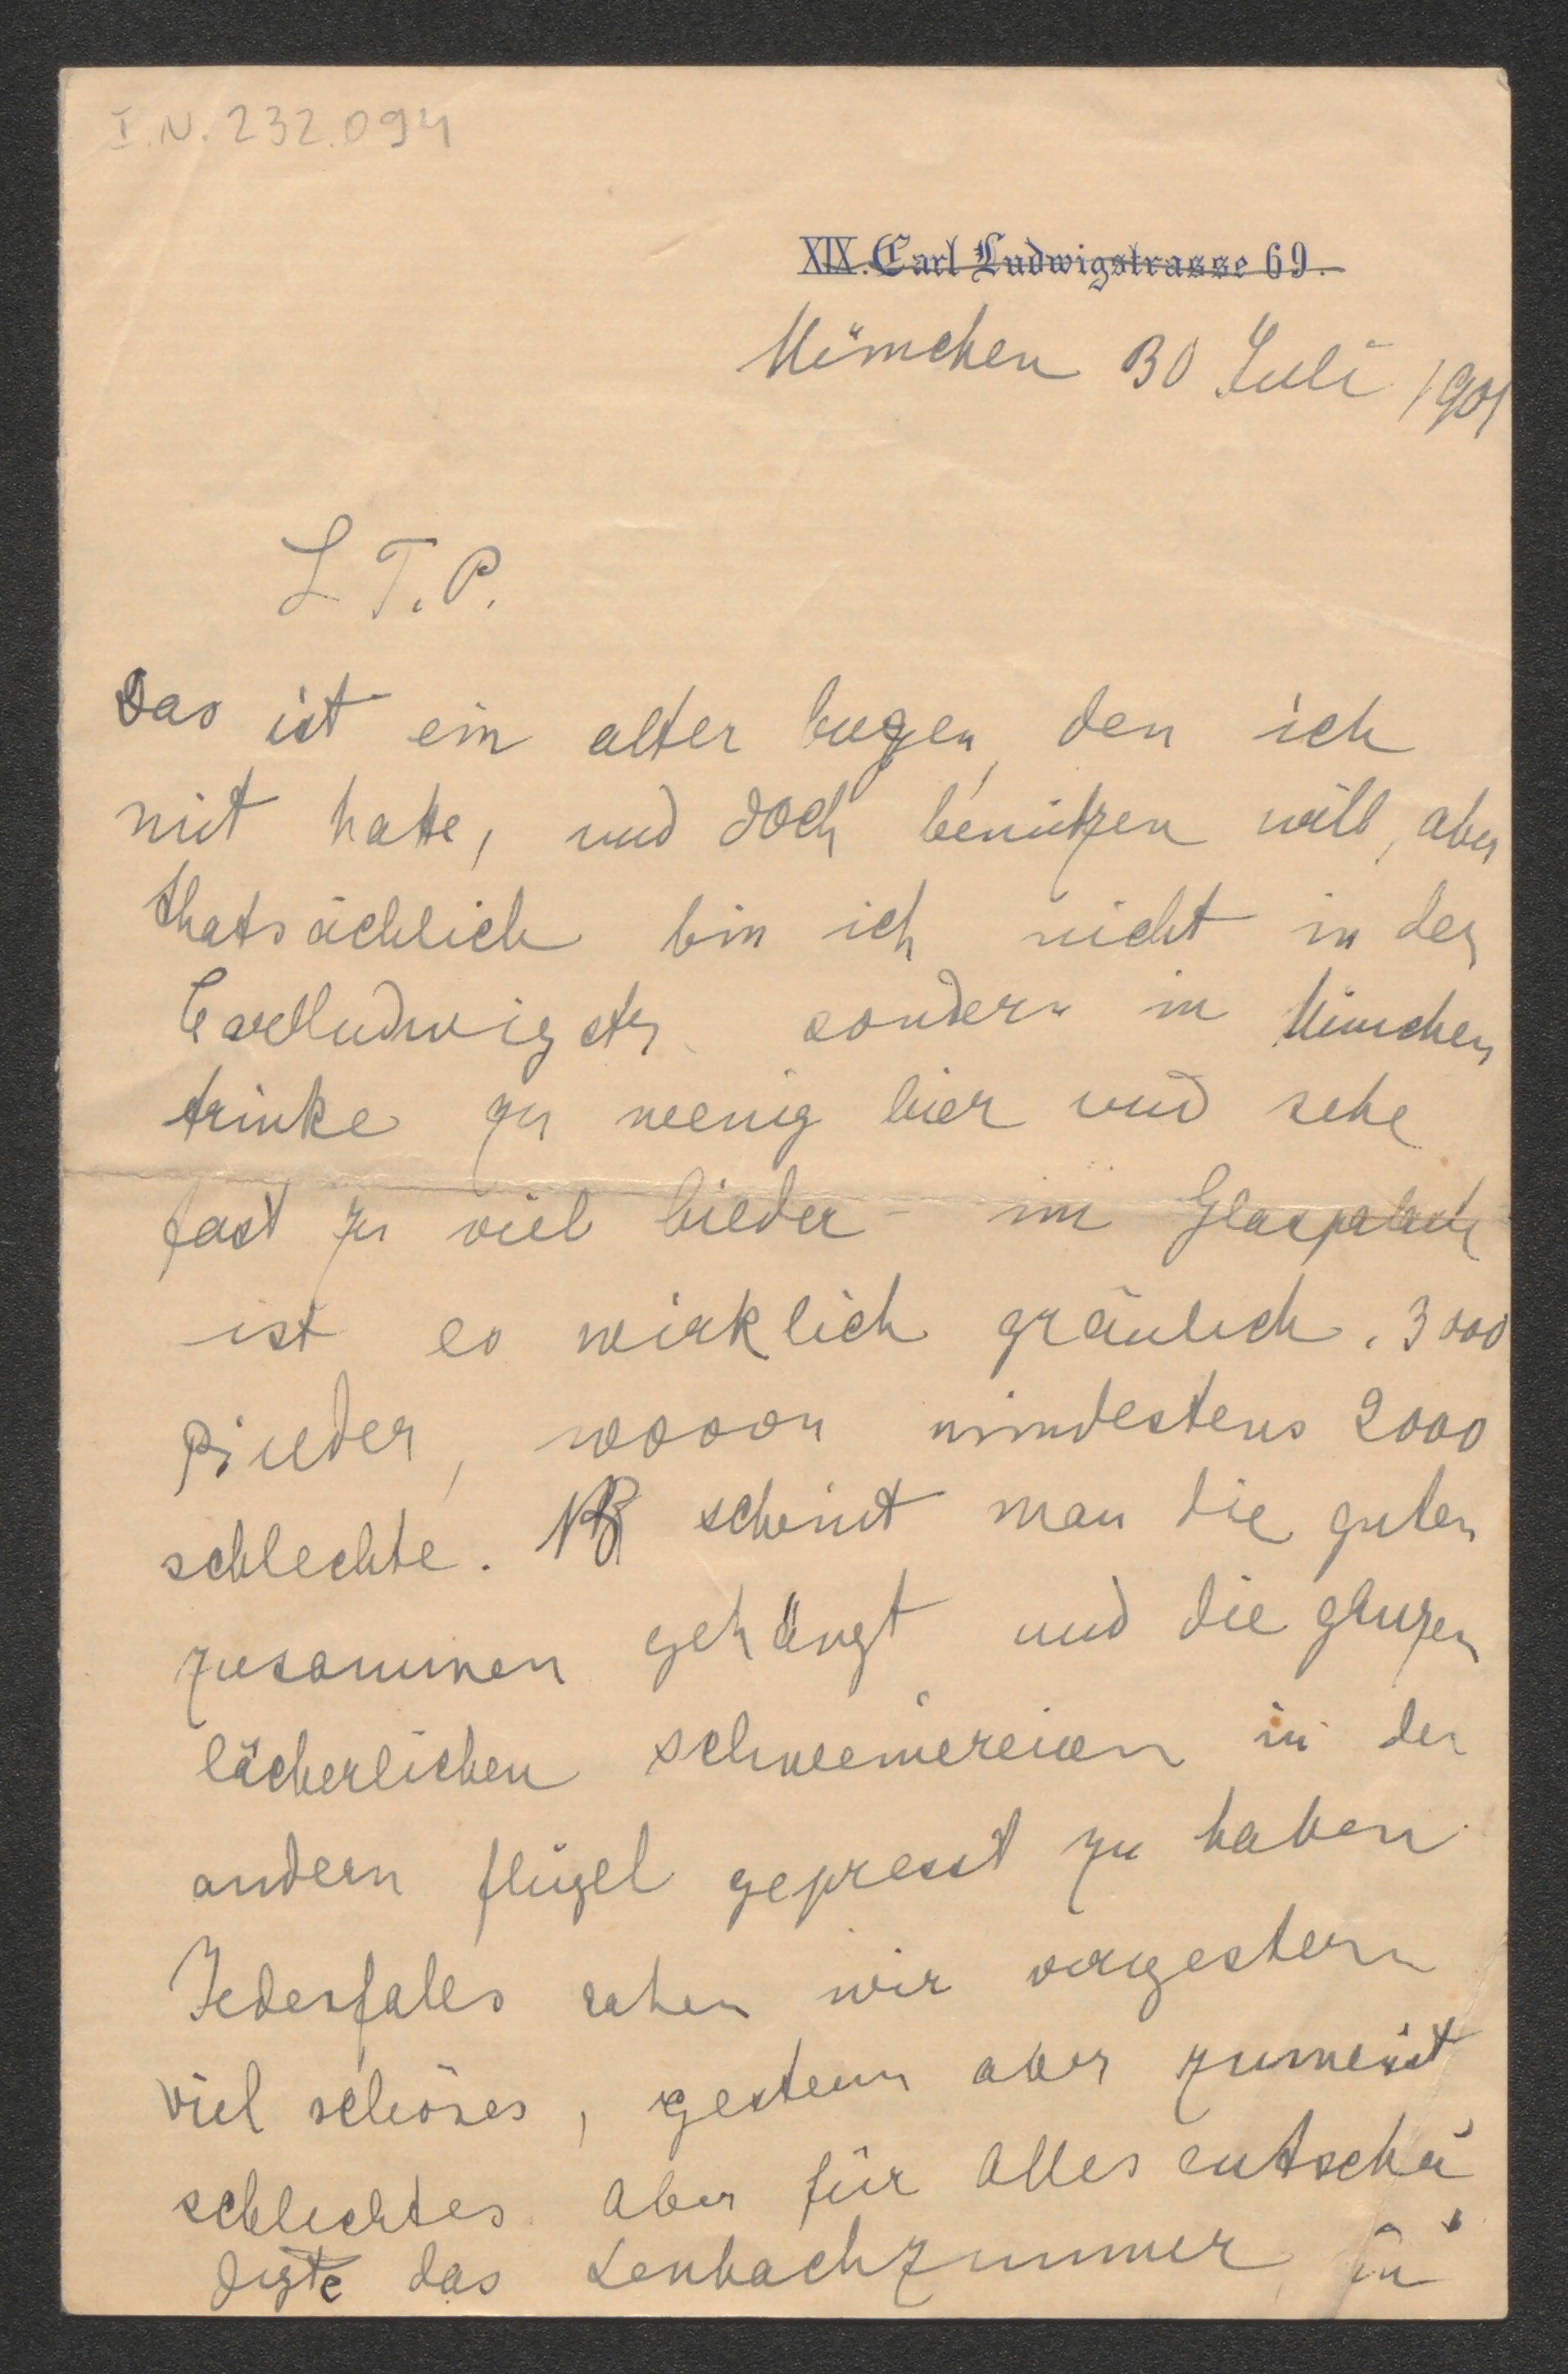 I.N. 232.094
XIX. Carl Ludwigstrasse 69.
München 30 Juli 1901
L T. P.
Das ist ein alter bogen, den ich
mit hatte, und doch benützen will, aber
thatsächlich bin ich nicht in der
Carlludwigstr. sondern in München
trinke zu wenig bier und sehe
fast zu viel bilder - im Glaspalast
ist es wirklich gräulich. 3000
Bilder, wovon mindestens 2000
schlechte. scheint man die guten
zusammen gehängt und die ganzen
lächerlichen schweinereien in den
andern flügel gepresst zu haben
Jedenfalls sahen wir vorgestern
viel schönes, gestern aber zumeist
schlechtes. Aber für Alles entschä
digte das Lenbachzimmer, in